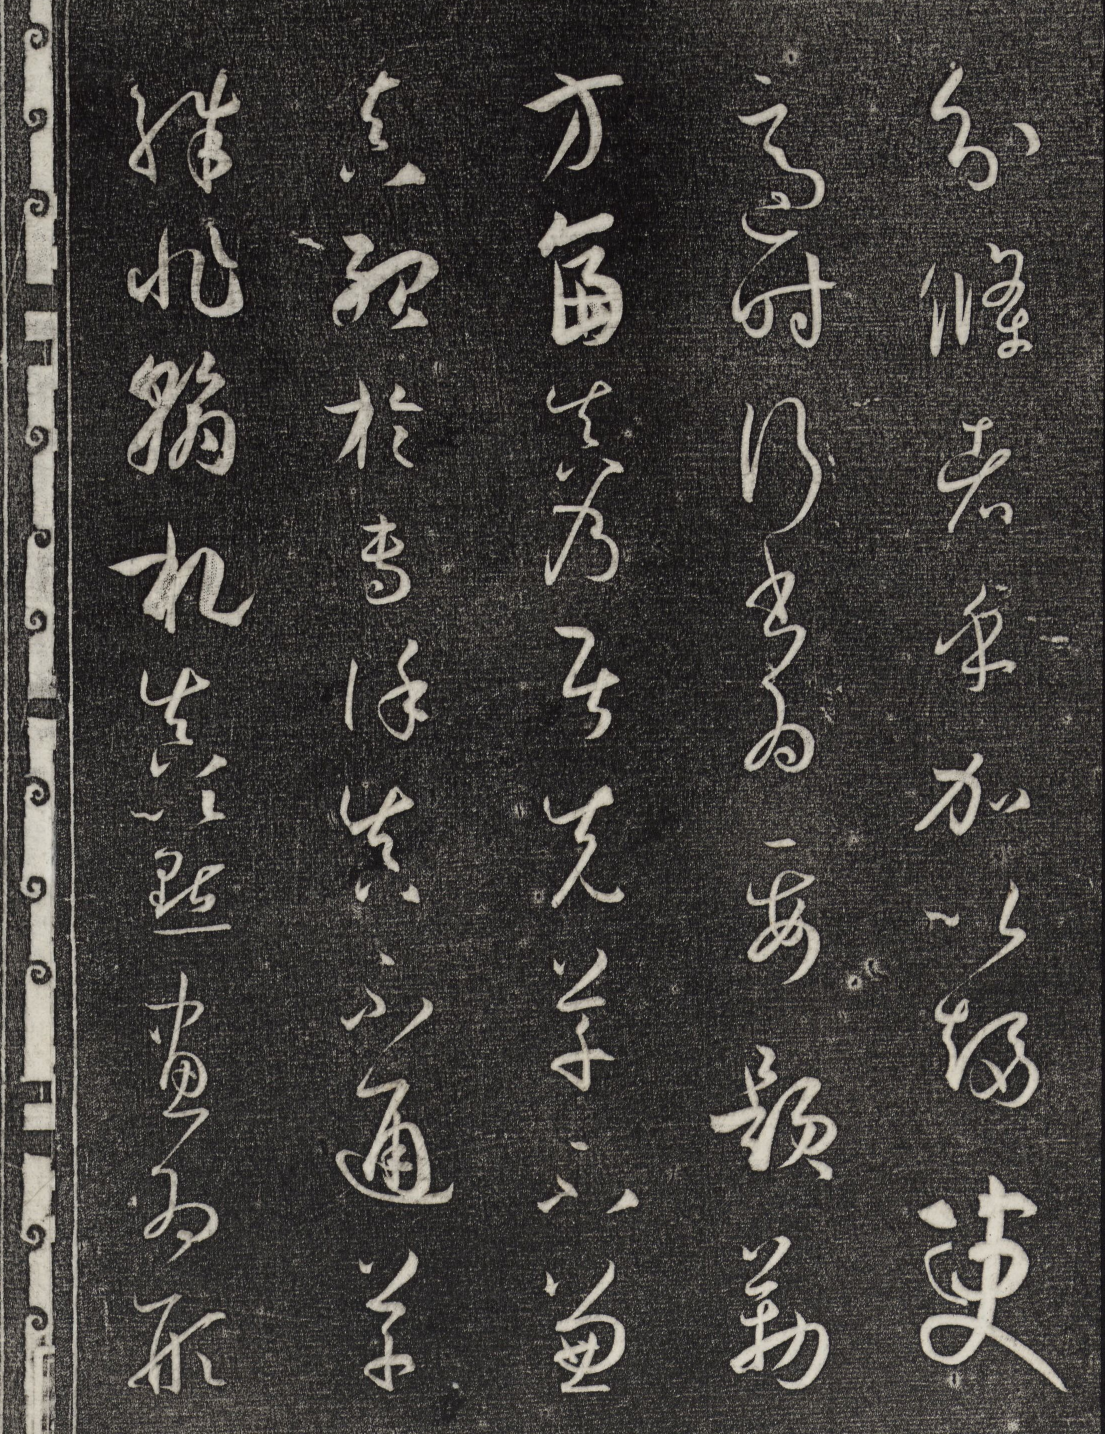 分條者乎加以趨變
適時行書為要題勒
方畐真乃居先草不兼
真殆於專謹真不通草
殊非翰札真以點畫為形